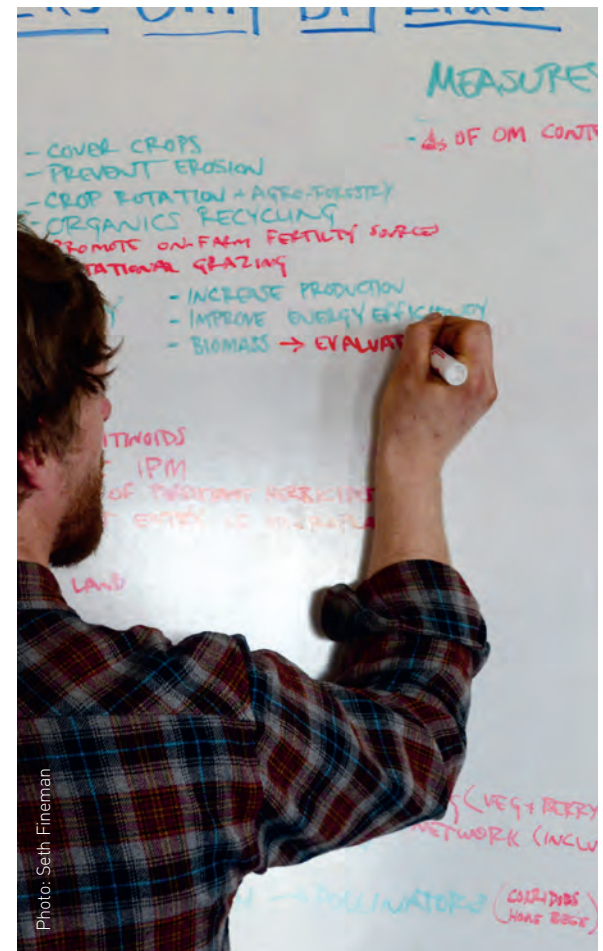 ONLY BY
MEASURES
- COVER CROPS
- Δs OF OM CONTE
- PREVENT EROSION
- CROP ROTATION + AGRO-FORESTRY
- ORGANICS RECYCLING
PROMOTE ON-FARM FERTILTY SOURCES
TATIONAL GRAZING
Y - INCREASE PRODUCTION
- IMPROVE ENERGY EFFICIENCY
- BIOMASS → EVALUAT
ITINOIDS
IPM
OF
LAND
(VEG + BERRY
NETWORK (INCLU
→ POLLINATORS (CORRIDORS
HOME BEES)
Photo: Seth Fineman